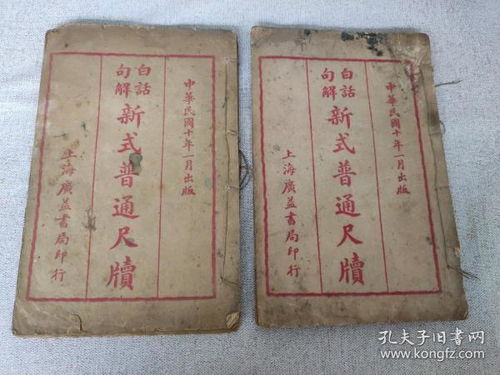 中華民國十年一月出版
白話
句解
新式普通尺牘
上海廣益書局印行
中華民國十年一月出版
白話
句解
新式普通尺牘
上海廣益書局印行
孔夫子旧书网
www.kongfz.com